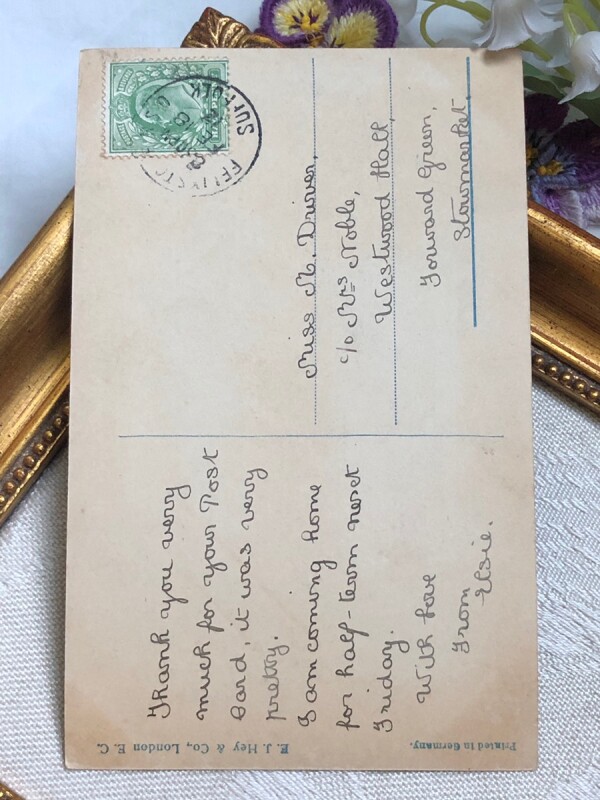 Thank you very
much for your Post
Card, it was very
pretty.
I am coming home
for half-term next
Friday.
With love
From
Elsie.
Miss M. Driver,
c/o Mrs Noble,
Westwood Hall,
Forward Green,
Stowmarket.
SUFFOLK
E. J. Hey & Co., London E. C.
Printed in Germany.